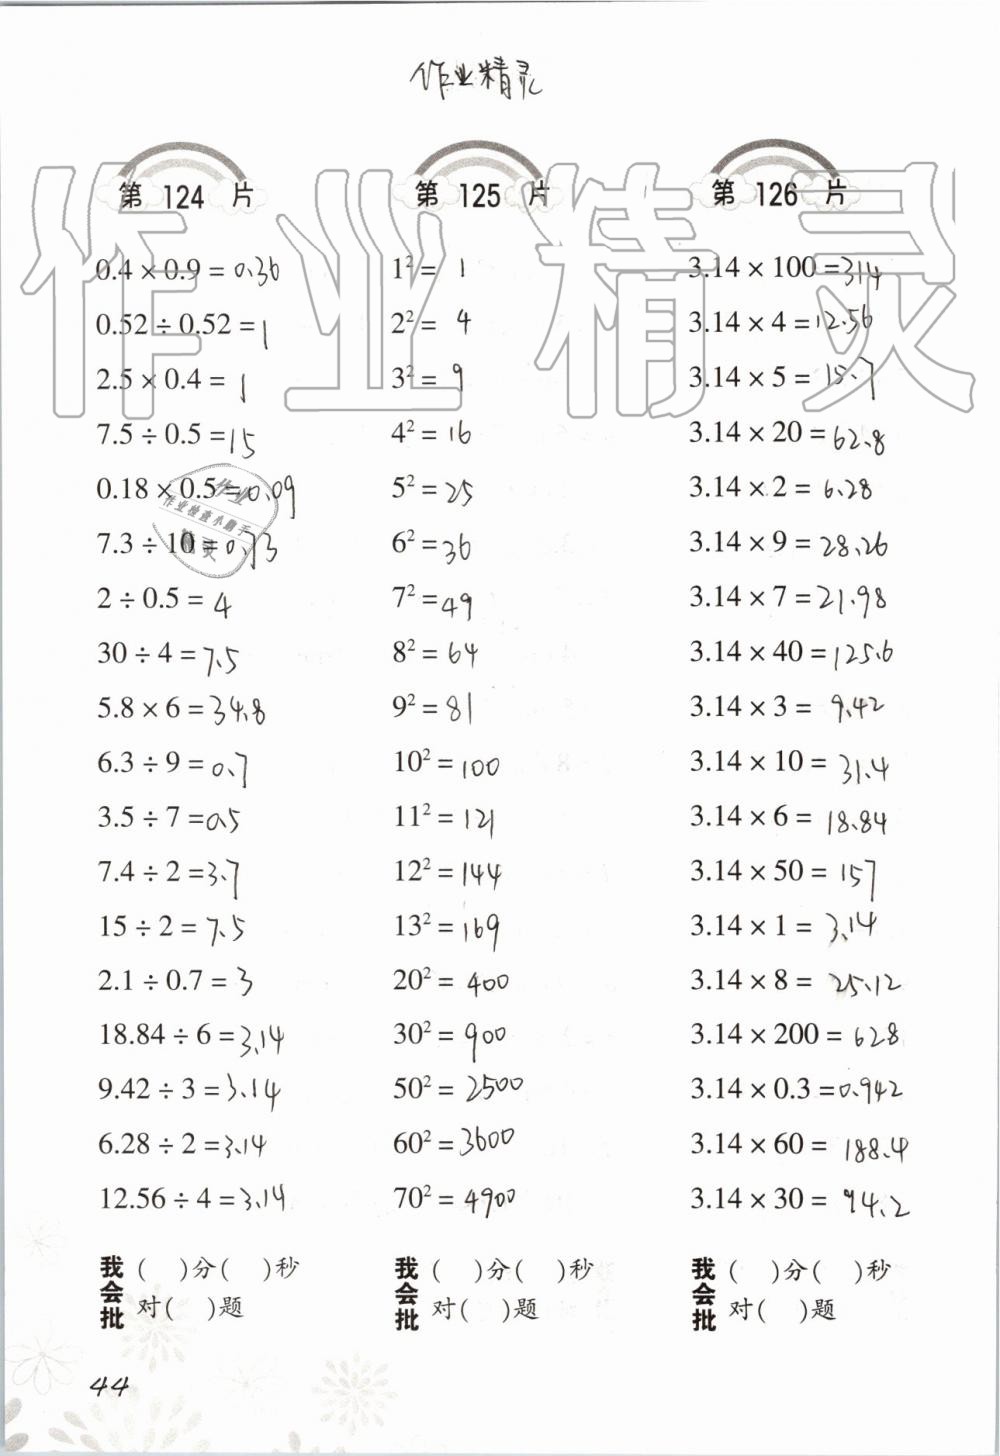 作业精灵
第 124 片
0.4 × 0.9 = 0.36
0.52 ÷ 0.52 = 1
2.5 × 0.4 = 1
7.5 ÷ 0.5 = 15
0.18 × 0.5 = 0.09
7.3 ÷ 10 = 0.73
2 ÷ 0.5 = 4
30 ÷ 4 = 7.5
5.8 × 6 = 34.8
6.3 ÷ 9 = 0.7
3.5 ÷ 7 = 0.5
7.4 ÷ 2 = 3.7
15 ÷ 2 = 7.5
2.1 ÷ 0.7 = 3
18.84 ÷ 6 = 3.14
9.42 ÷ 3 = 3.14
6.28 ÷ 2 = 3.14
12.56 ÷ 4 = 3.14
我会批
( )分( )秒
对( )题
第 125 片
1² = 1
2² = 4
3² = 9
4² = 16
5² = 25
6² = 36
7² = 49
8² = 64
9² = 81
10² = 100
11² = 121
12² = 144
13² = 169
20² = 400
30² = 900
50² = 2500
60² = 3600
70² = 4900
我会批
( )分( )秒
对( )题
第 126 片
3.14 × 100 = 314
3.14 × 4 = 12.56
3.14 × 5 = 15.7
3.14 × 20 = 62.8
3.14 × 2 = 6.28
3.14 × 9 = 28.26
3.14 × 7 = 21.98
3.14 × 40 = 125.6
3.14 × 3 = 9.42
3.14 × 10 = 31.4
3.14 × 6 = 18.84
3.14 × 50 = 157
3.14 × 1 = 3.14
3.14 × 8 = 25.12
3.14 × 200 = 628
3.14 × 0.3 = 0.942
3.14 × 60 = 188.4
3.14 × 30 = 94.2
我会批
( )分( )秒
对( )题
44
作业精灵
作业
作业检查小助手
精灵